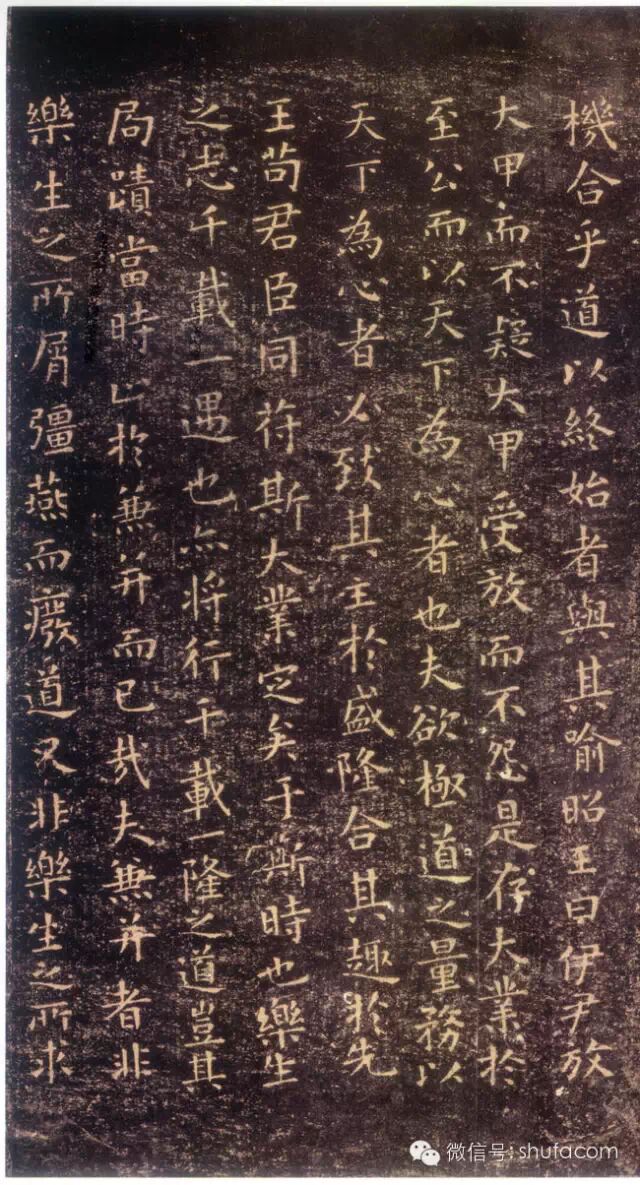 機合乎道以終始者與其喻昭王曰伊尹放
大甲而不疑大甲受放而不怨是存大業於
至公而以天下為心者也夫欲極道之量務以
天下為心者必致其主於盛隆合其趣於先
王苟君臣同符斯大業定矣于斯時也樂生
之志千載一遇也亦將行千載一隆之道豈其
局蹟當時止於兼并而已哉夫兼并者非
樂生之所屑彊燕而廢道又非樂生之所求
微信号: shufacom